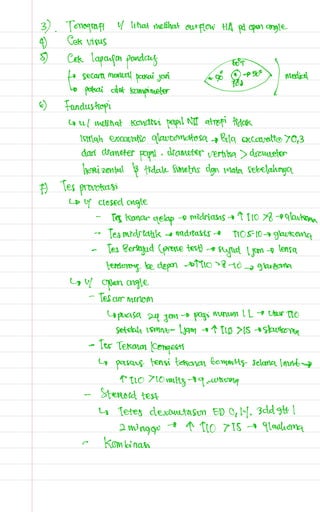 3) Tonografi u/ lihat melihat outflow HA pd open angle
4) Cek visus
5) Cek lapangan pandang
↳ secara manual pakai jari
↳ pakai alat kampimeter
90° 90° medial
6) Funduskopi
↳ u/ melihat kondisi papil NII atrofi tidak
istilah excavatio glaucomatosa → Bila excavatio > 0,3
dari diameter papil. diameter vertika > diameter
horizontal & tidak simetris dgn mata sebelahnya
7) Tes provokasi
↳ u/ closed angle
- Tes kamar gelap → midriasis → ↑ TIO > 8 → glaukoma
- Tes midriatik → midriasis → TIO 5-10 → glaukoma
- Tes Bersujud (prone test) → sujud 1 jam → lensa
terdorong ke depan → ↑ TIO > 8-10 → glaukoma
↳ u/ open angle
- Tes air minum
↳ puasa 24 jam → pagi minum 1 L → ukur TIO
setelah 15 mnt - 1 jam → ↑ TIO > 15 → glaukoma
- Tes Tekanan Kongesti
↳ pasang tensi tekanan 60 mmHg selama 1 mnt →
↑ TIO > 10 mmHg → glaukoma
- Steroid test
↳ Tetes dexametason ED 0,1%. 3dd gtt 1
2 minggu → ↑ TIO > 15 → glaukoma
- Kombinasi